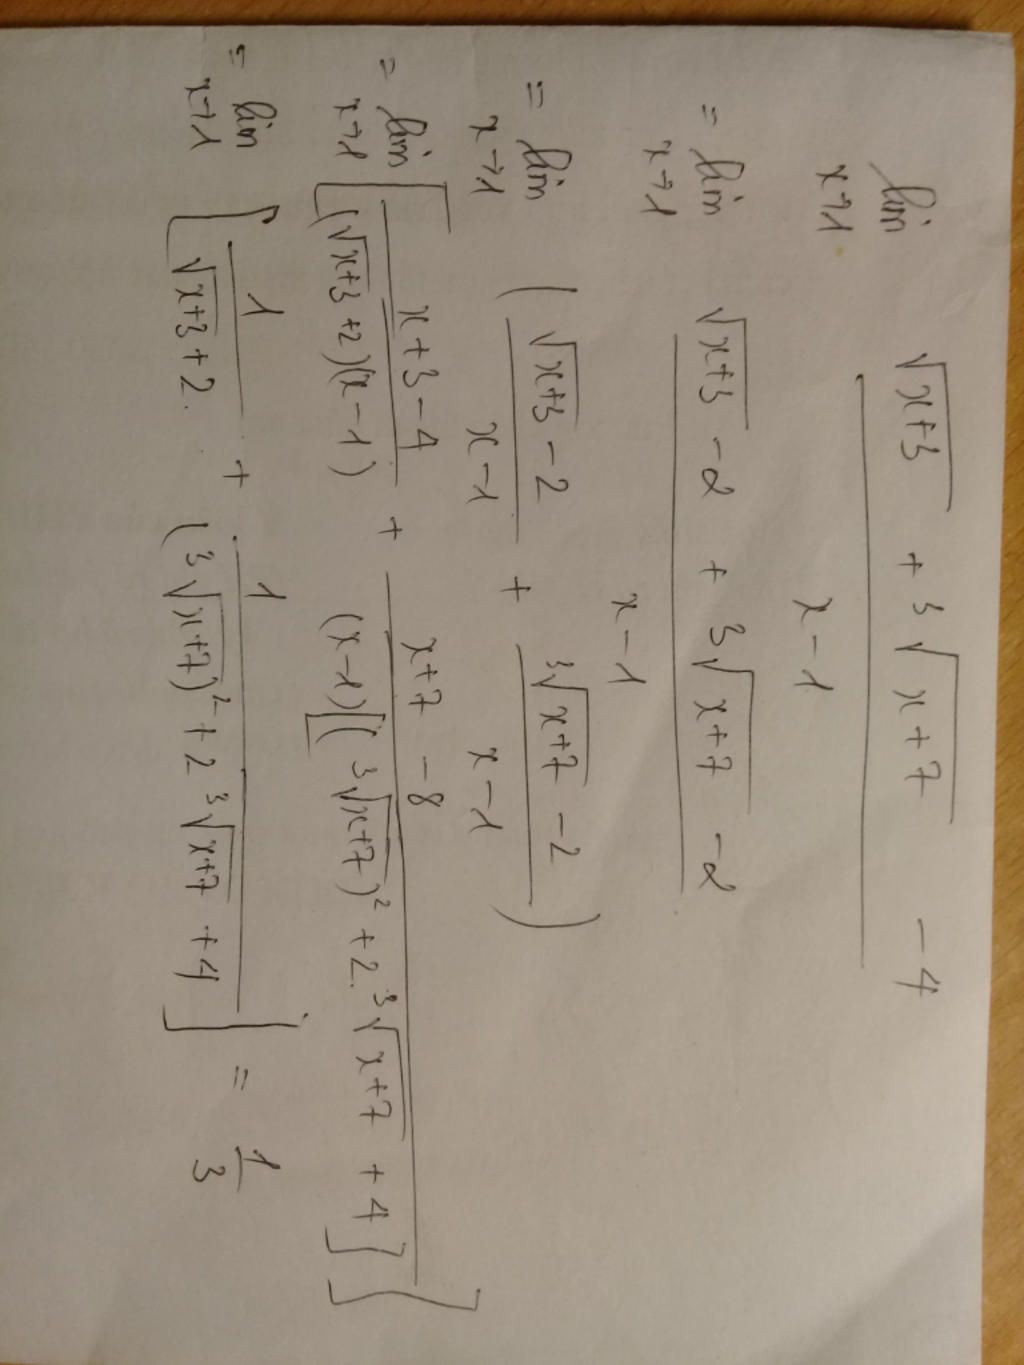 lim x→1 (√(x+3) + ³√(x+7) − 4)/(x−1)
= lim x→1 (√(x+3) − 2 + ³√(x+7) − 2)/(x−1)
= lim x→1 ( (√(x+3) − 2)/(x−1) + (³√(x+7) − 2)/(x−1) )
= lim x→1 [ (x+3−4)/((√(x+3) + 2)(x−1)) + (x+7−8)/((x−1)[(³√(x+7))² + 2.³√(x+7) + 4]) ]
= lim x→1 [ 1/(√(x+3) + 2.) + 1/((³√(x+7))² + 2 ³√(x+7) + 4) ] = 1/3